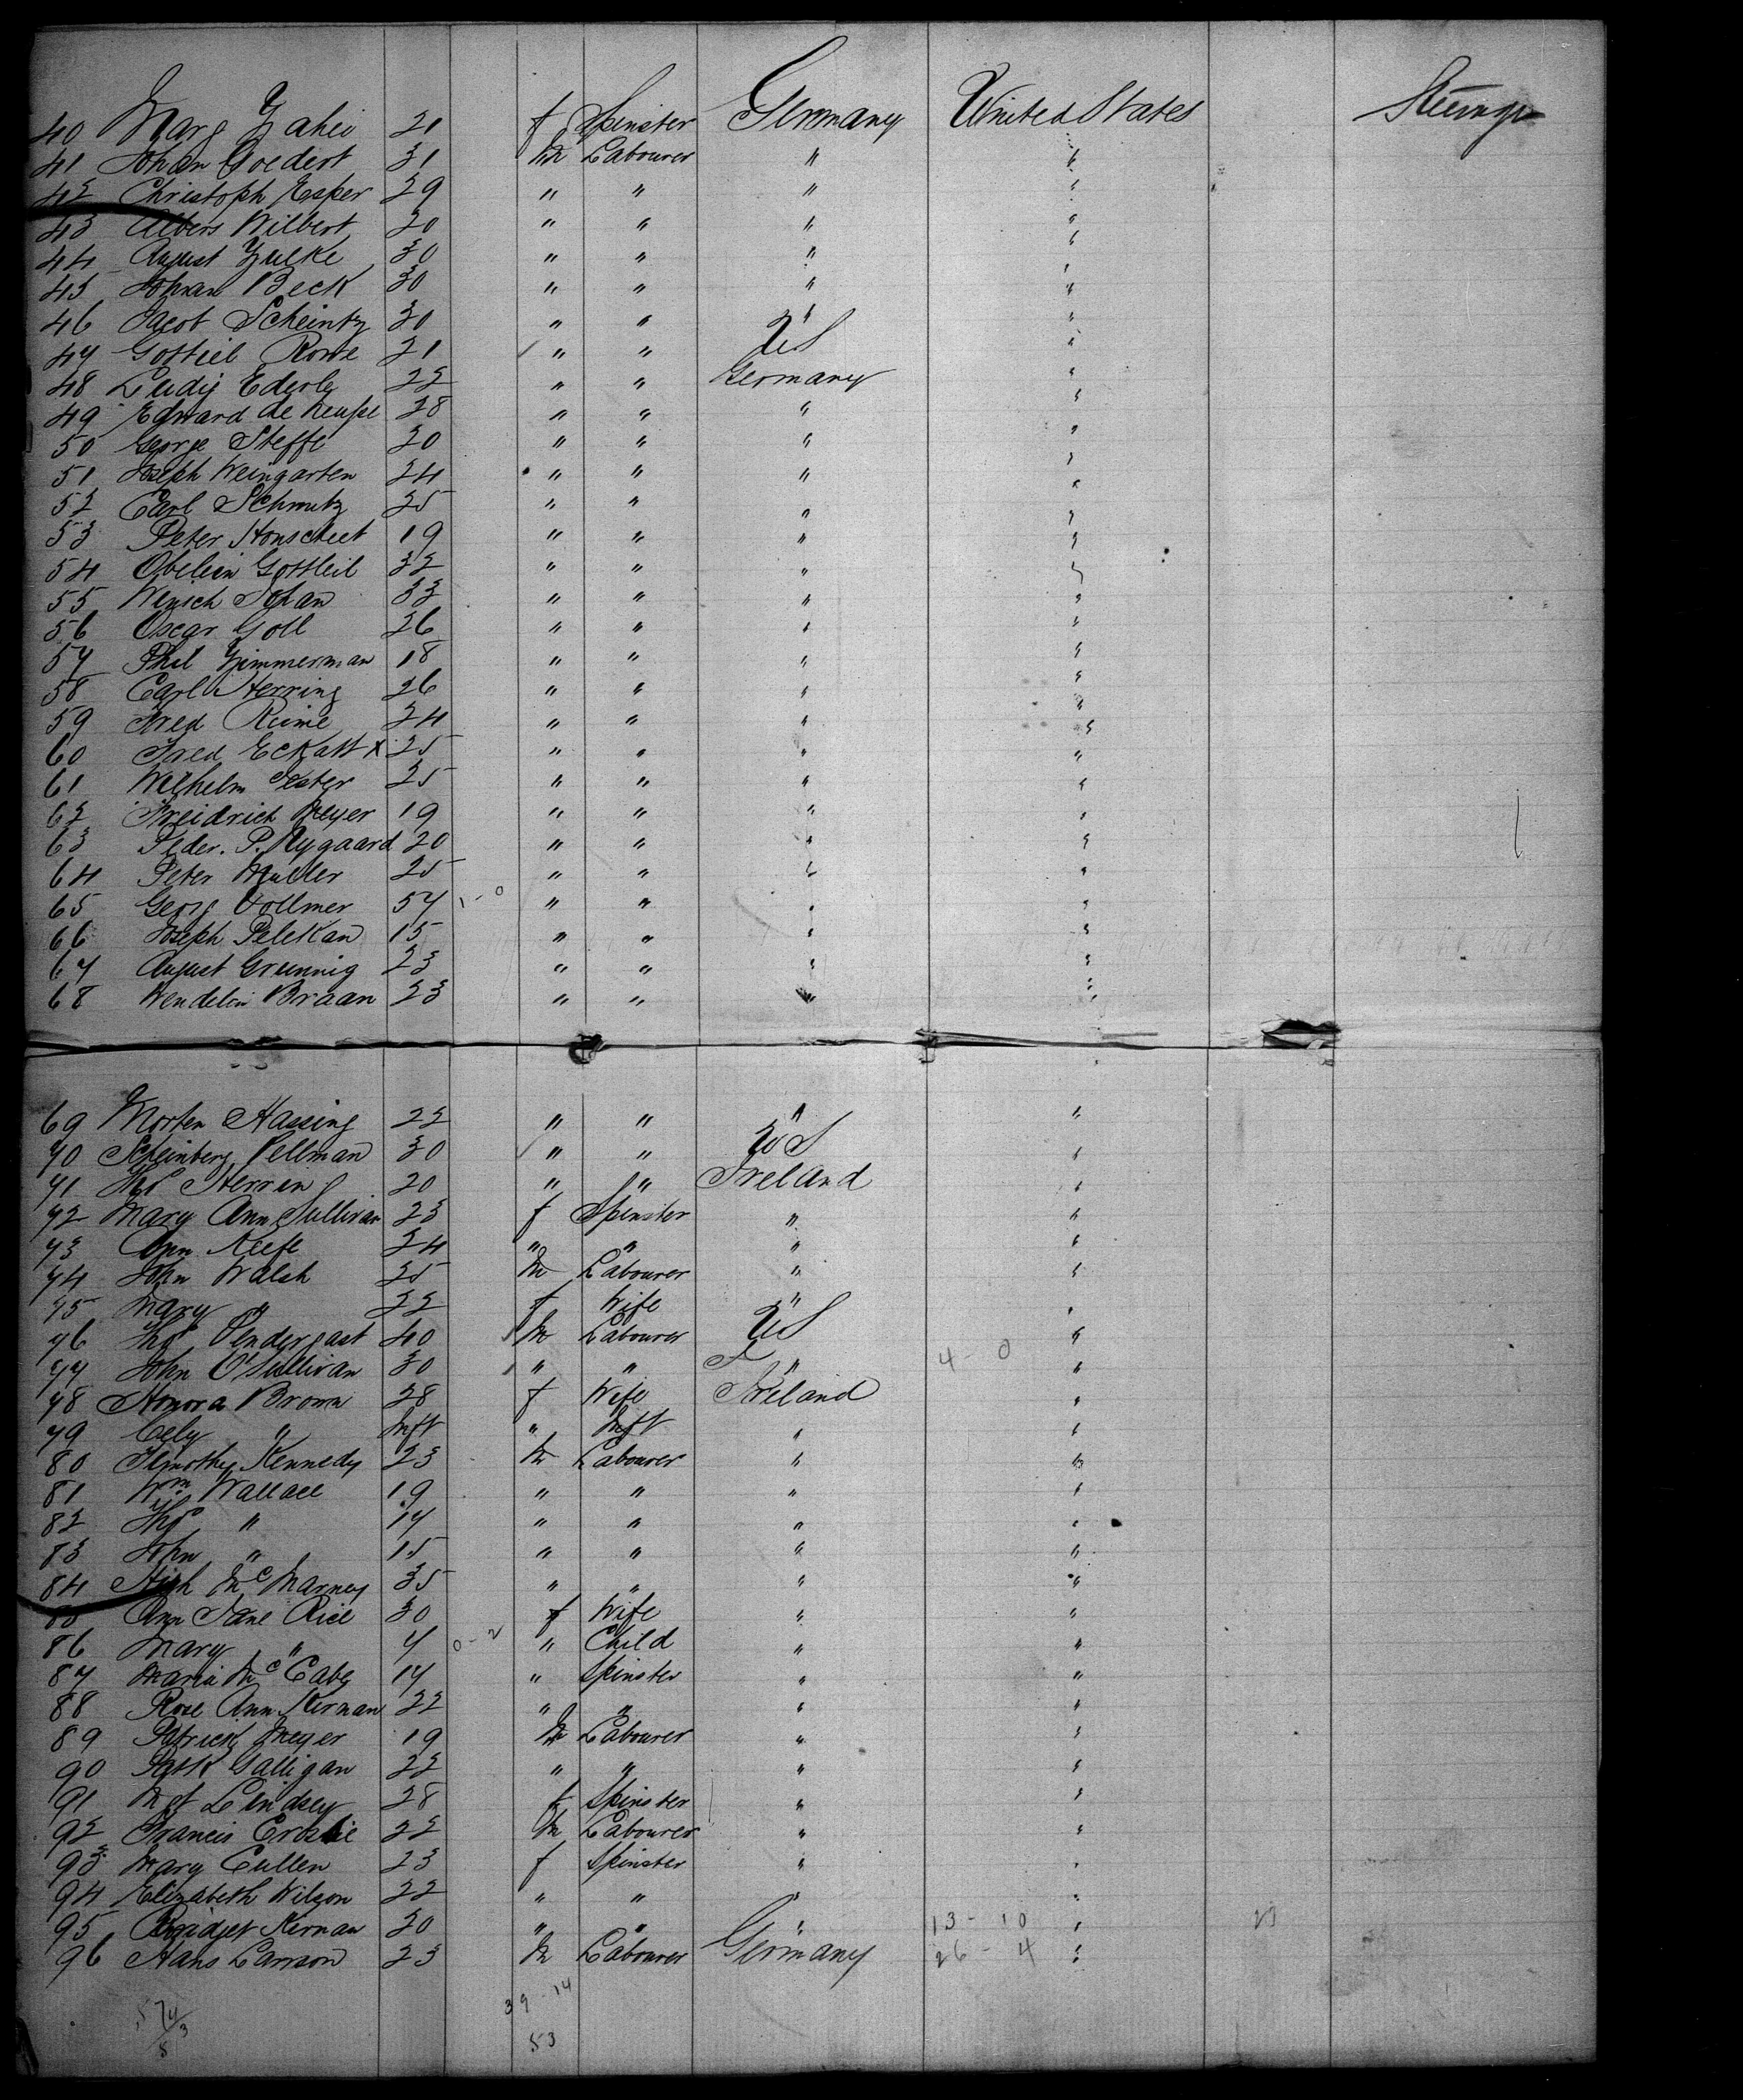 40 Marg Zahei 21 f Spinster Germany United States Steerage
41 Johan Goedert 31 m Labourer " "
42 Christoph Esper 29 " " " "
43 Albers Wilbert 20 " " " "
44 August Zuelke 30 " " " "
45 Johan Beck 30 " " " "
46 Jacob Scheintz 30 " " " "
47 Gottieb Rowe 21 " " US "
48 Ludig Ederly 22 " " Germany "
49 Edward de 28 " " " "
50 George Steffe 20 " " " "
51 Joseph Weingarten 24 " " " "
52 Carl Schmutz 25 " " " "
53 Peter Honscheet 19 " " " "
54 Obelein Gottleil 32 " " " "
55 Wensch Johan 33 " " " "
56 Oscar Goll 26 " " " "
57 Phil Zimmerman 18 " " " "
58 Carl Herring 26 " " " "
59 Fred Reime 24 " " " "
60 Fred Eckatt x 25 " " " "
61 Wilhelm Pester 25 " " " "
62 Freidrich Meyer 19 " " " "
63 Peder. P. Nygaard 20 " " " "
64 Peter Muller 25 " " " "
65 Georg Vollmer 57 1-0 " " " "
66 Joseph Pelekan 15 " " " "
67 August Grunnig 23 " " " "
68 Wendelin Braan 23 " " " "
69 Morten Hassing 22 " " " "
70 Scheinberg Pellman 30 " " US "
71 Thos Herren 20 " " Ireland "
72 Mary Ann Sullivan 23 f Spinster " "
73 Ann Keefe 24 " " " "
74 John Walsh 25 m Labourer " "
75 Mary " 22 f Wife " "
76 Thos Pendergast 40 m Labourer US "
77 John O'Sullivan 30 " " " 4-0 "
78 Honora Brown 28 f Wife Ireland "
79 Cely " Inft " Inft " "
80 Timothy Kennedy 23 m Labourer " "
81 Wm Wallace 19 " " " "
82 Thos " 17 " " " "
83 John " 15 " " " "
84 Hugh McMarney 35 " " " "
85 Ann Jane Rice 30 f Wife " "
86 Mary " 4 0-2 " Child " "
87 Maria McCabe 17 " Spinster " "
88 Rose Ann Kernan 22 " " " "
89 Patrick Meyer 19 m Labourer " "
90 Patk Galligan 22 " " " "
91 Mgt Lindsey 28 f Spinster " "
92 Francis Croskie 22 m Labourer " "
93 Mary Cullen 23 f Spinster " "
94 Elizabeth Wilson 22 " " " "
95 Bridget Kernan 20 " " " 13-10 " 23
96 Hans Larrson 23 m Labourer Germany 26-4 "
39-14
53